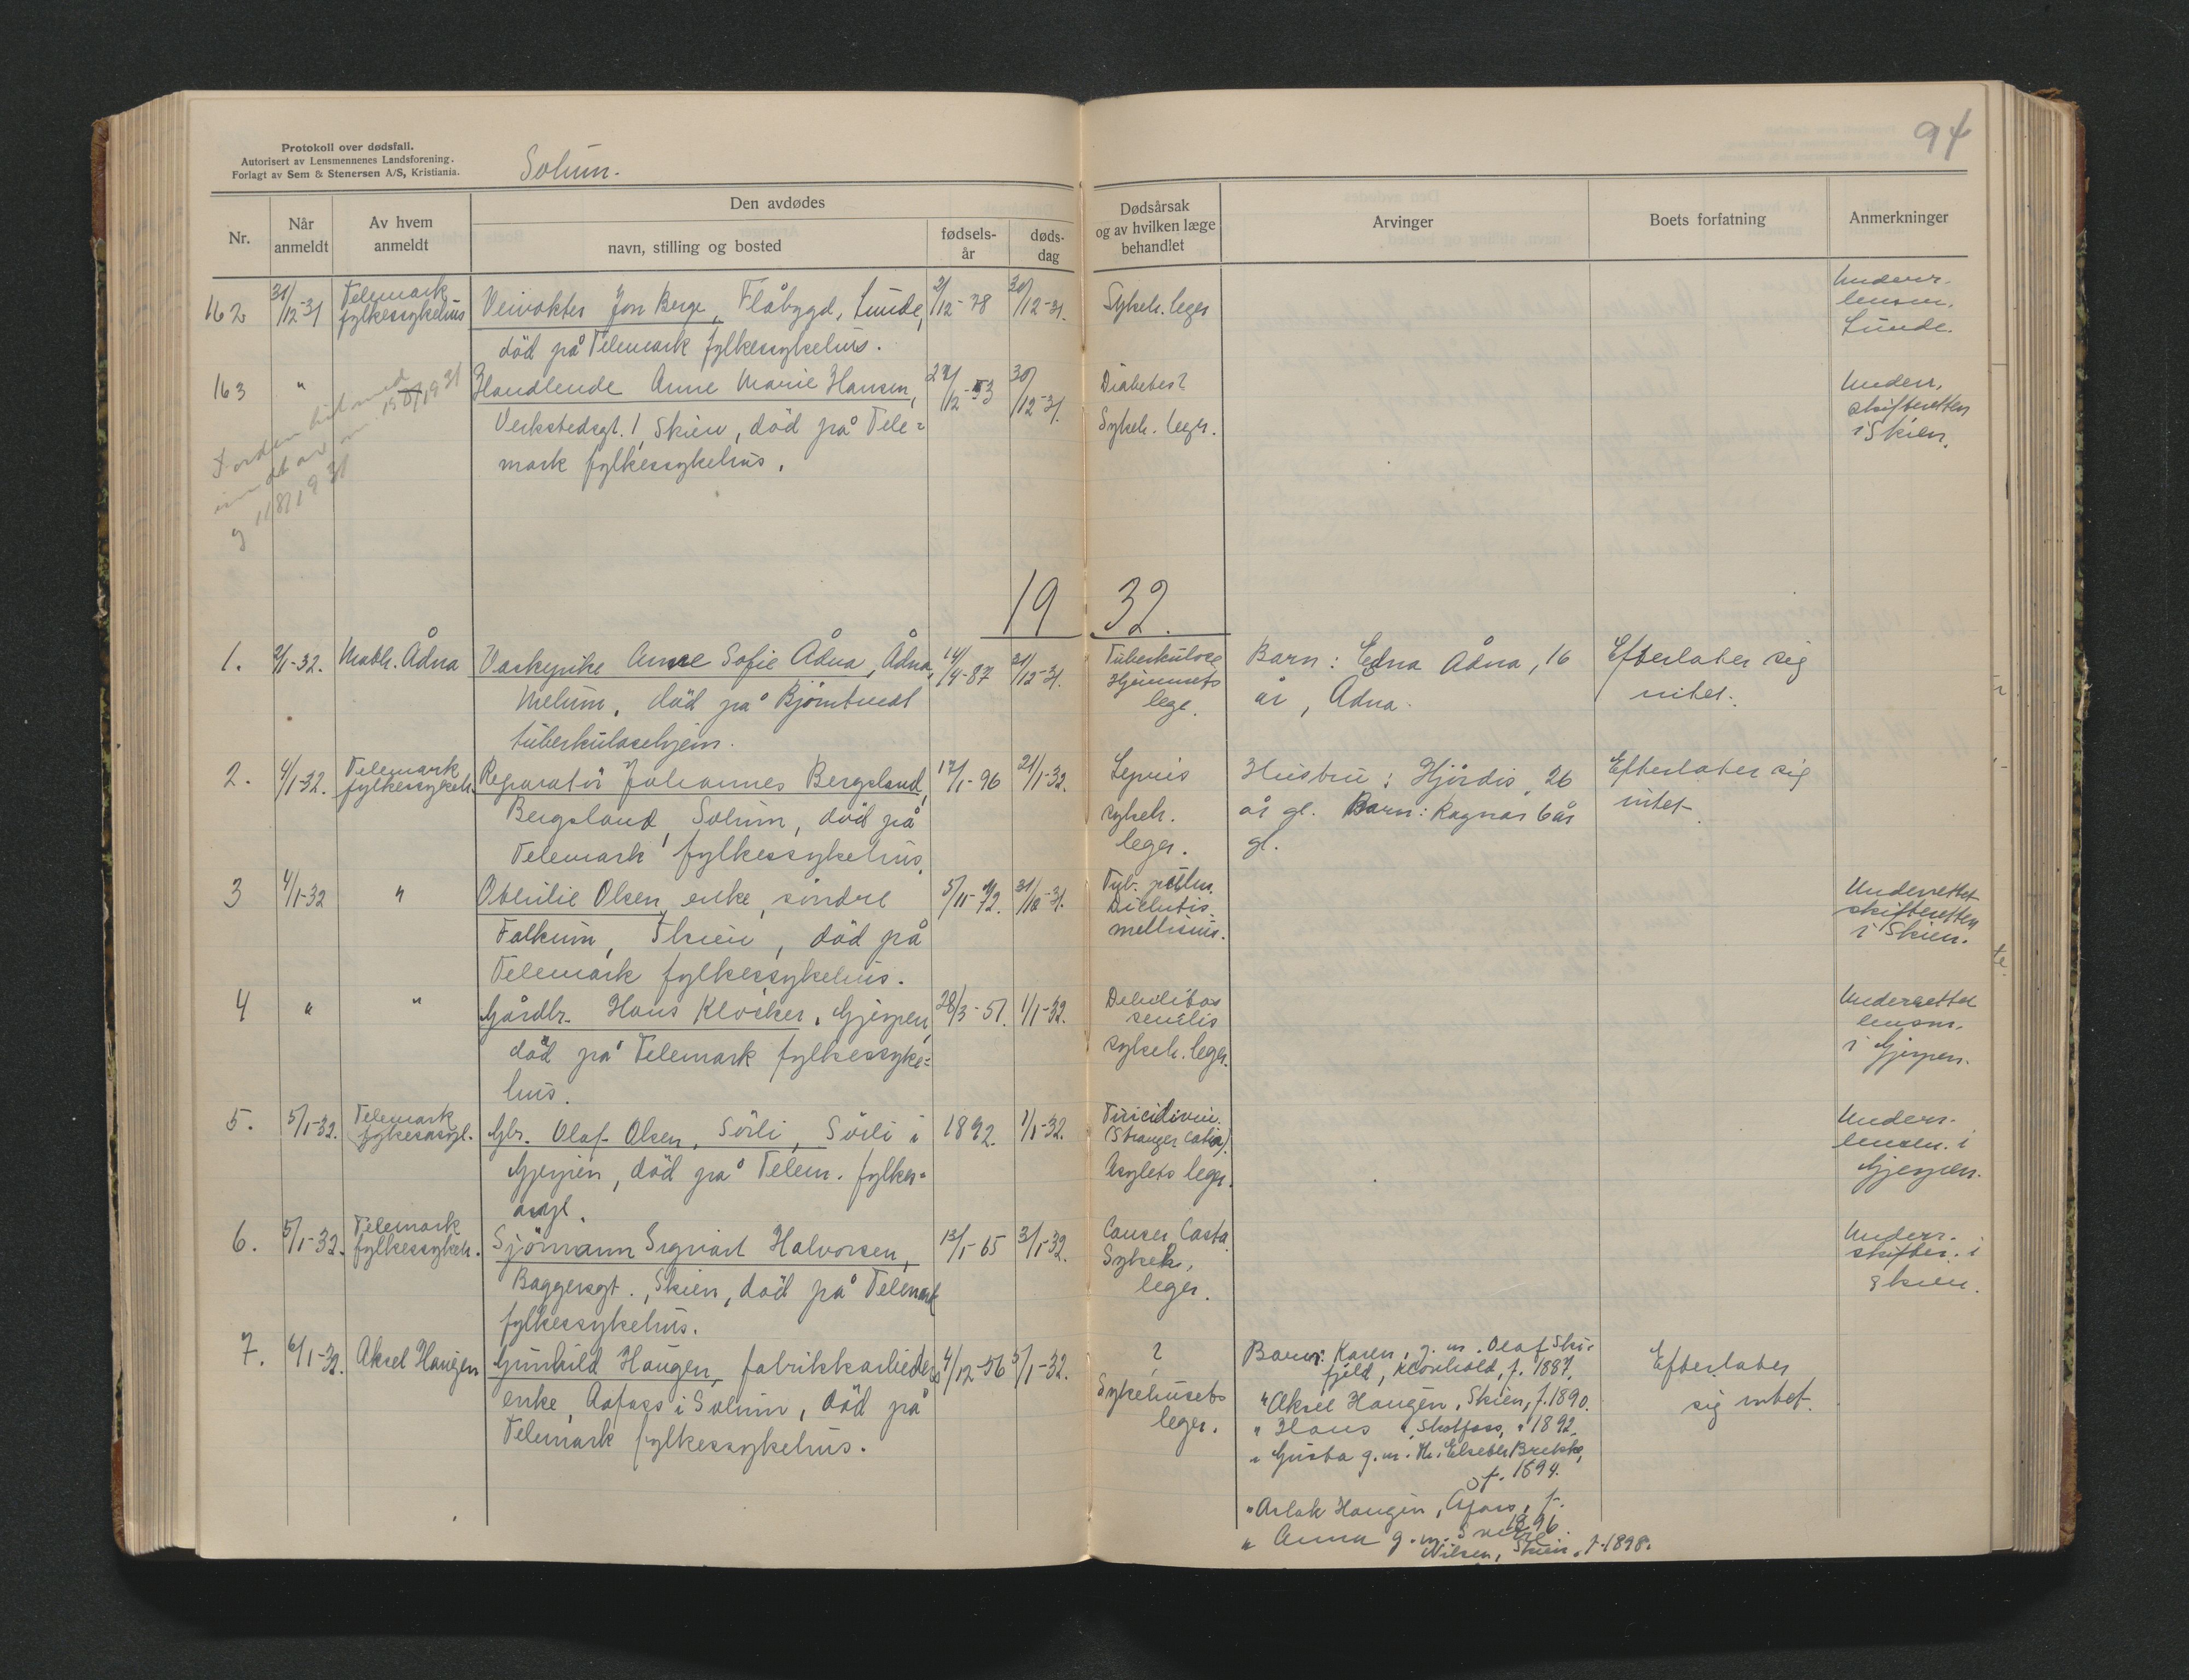 94
Protokoll over dødsfall.
Autorisert av Lensmennenes Landsforening.
Forlagt av Sem & Stenersen A/S, Kristiania.
Solum.
Nr.
Når anmeldt
Av hvem anmeldt
Den avdødes
navn, stilling og bosted
fødsels-år
døds-dag
Dødsårsak og av hvilken læge behandlet
Arvinger
Boets forfatning
Anmerkninger
162 31/12-31 Telemark fylkessykehus
Veivokter Jon Berge, Flåbygd, Lunde, 21/12-78 30/12-31. Sykeh. leger
död på Telemark fylkessykehus.
Underr.
lensm.
Lunde.
163 " Handlende Anne Marie Hansen, 30/12-31. Diabetes?
Verkstedsgt. 1, Skien, död på Tele=
mark fylkessykehus.
Sykeh. leger.
Underr.
skifteretten
i Skien.
1931
1932.
1. 2/1-32. Mathi. Ådna Vaskepike Anne Sofie Ådna, Ådna, 14/4-87 31/12-31.
Melum, död på Bjöntvedt
tuberkulosehjem.
Tuberkulose
Hjemmets
lege.
Barn: Edna Ådna, 16
år, Ådna.
Efterlater sig
intet.
2. 4/1-32. Telemark fylkessykeh. Reparatör Johannes Bergsland, 17/1-96 2/1-32.
Bergsland, Solum, död på
Telemark fylkessykehus.
sykeh.
leger.
Hustru: Hjördis, 26
år gl. Barn: Ragnar 6 år
gl.
Efterlater sig
intet.
3 4/1-32 " Othilie Olsen, enke, söndre 5/11-72. 31/12-31.
Falkum, Skien, död på
Telemark fylkessykehus.
Tub. pulm.
mellitus.
Underrettet
skifteretten
i Skien.
4 " " Gårdbr. Hans Klocker, Gjerpen, 28/3-51. 1/1-32.
död på Telemark fylkessyke=
hus.
Debilitas
senilis
sykeh. leger.
Underrettet
lensm.
i Gjerpen.
5. 5/1-32. Telemark fylkesasyl. Gbr. Olaf Olsen, Sörli, Sörli i 1892. 1/1-32.
Gjerpen, död på Telem. fylkes=
asyl.
Asylets leger.
Underr.
lensm. i
Gjerpen.
6. 5/1-32. Telemark fylkessykeh. Sjömann Sigvart Halvorsen, 13/1-65 3/1-32.
Baggersgt., Skien, död på Telemark
fylkessykehus.
Cancer Costa
Sykeh.
leger.
Underr.
skifter. i
Skien.
7. 6/1-32. Aksel Haugen Gunhild Haugen, fabrikkarbeiders 4/12-56 5/1-32.
enke, Aafoss i Solum, död på
Telemark fylkessykehus.
?
Sykehusets
leger.
Barn: Karen, g. m. Olaf Ski-
fjeld, Kloshold, f. 1887.
" Aksel Haugen, Skien, f. 1890.
" Hans ", Skotfoss, " 1892.
" Gusta g. m. Elseth Brekke,
f. 1894.
" Aslak Haugen, Åfoss, f.
1896.
" Anna g. m. Sverre
Nilsen, Skien, f. 1898.
Efterlater
sig intet.